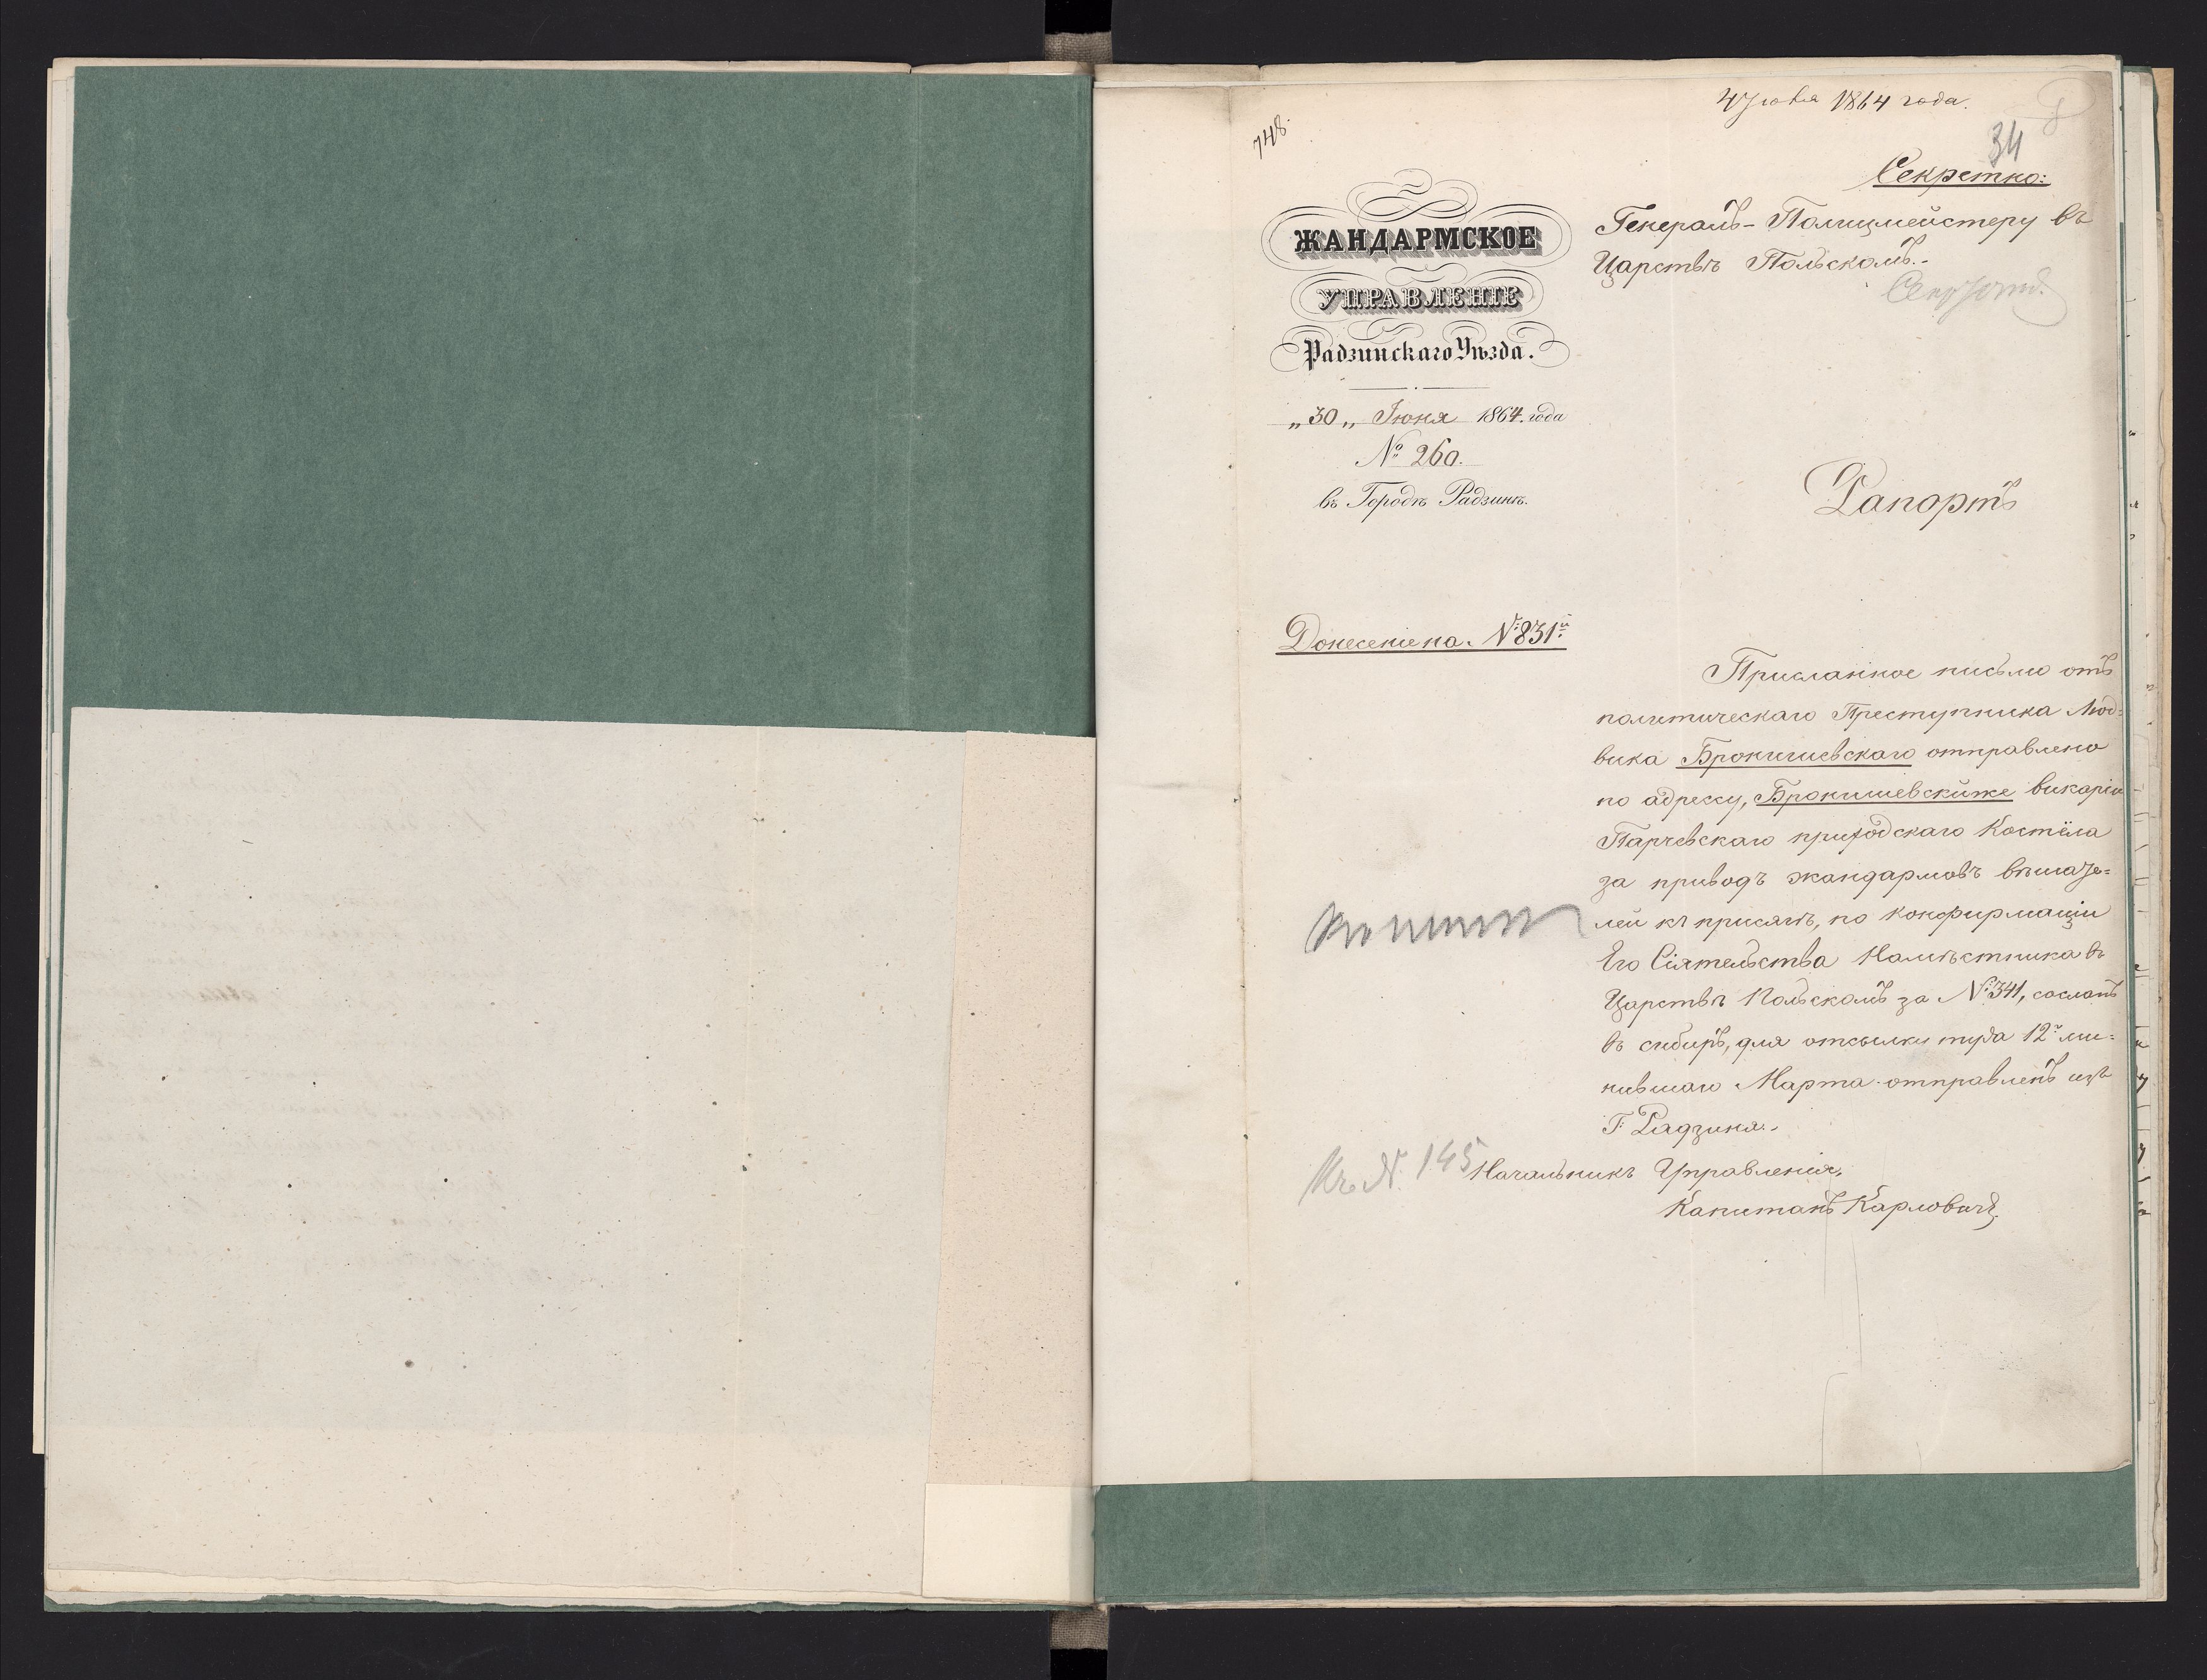 748.
4 Июля 1864 года.
34
Секретно:
ЖАНДАРМСКОЕ
УПРАВЛЕНІЕ
Радзинскаго Уѣзда.
„30„ Іюня 1864. года
№ 260.
въ Городѣ Радзинѣ.
Генералъ-Полицмейстеру въ
Царствѣ Польскомъ.-
Рапортъ
Донесеніе на № 831й
Присланное письмо отъ
политическаго Преступника Люд=
вика Бронишевскаго отправлено
по адрессу, Бронишевскій же викарій
Парчевскаго приходскаго Костёла
за приводъ жандармовъ вѣшате=
лей къ присягѣ, по конфирмаціи
Его Сіятельства Намѣстника въ
Царствѣ Польскомъ за № 341, сосланъ
въ сибирь, для отсылки туда 12го ми=
нувшаго Марта отправленъ изъ
Г: Радзина.
Къ № 145
Начальникъ Управленія,
Капитанъ Карловичъ